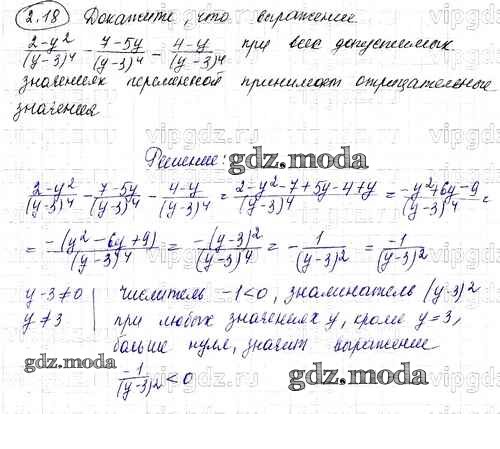 2.18 Докажите, что выражение
(2-y²)/(y-3)⁴ - (7-5y)/(y-3)⁴ - (4-y)/(y-3)⁴ при всех допустимых
значениях переменной принимает отрицательные
значения
Решение:
gdz.moda
(2-y²)/(y-3)⁴ - (7-5y)/(y-3)⁴ - (4-y)/(y-3)⁴ = (2-y²-7+5y-4+y)/(y-3)⁴ = (-y²+6y-9)/(y-3)⁴ =
= -(y²-6y+9)/(y-3)⁴ = -(y-3)²/(y-3)⁴ = -1/(y-3)² = -1/(y-3)²
y-3≠0 | числитель -1<0, знаминатель (y-3)²
y≠3 | при любых значениях y, кроме y=3,
больше нуля, значит выражение
-1/(y-3)² <0
gdz.moda